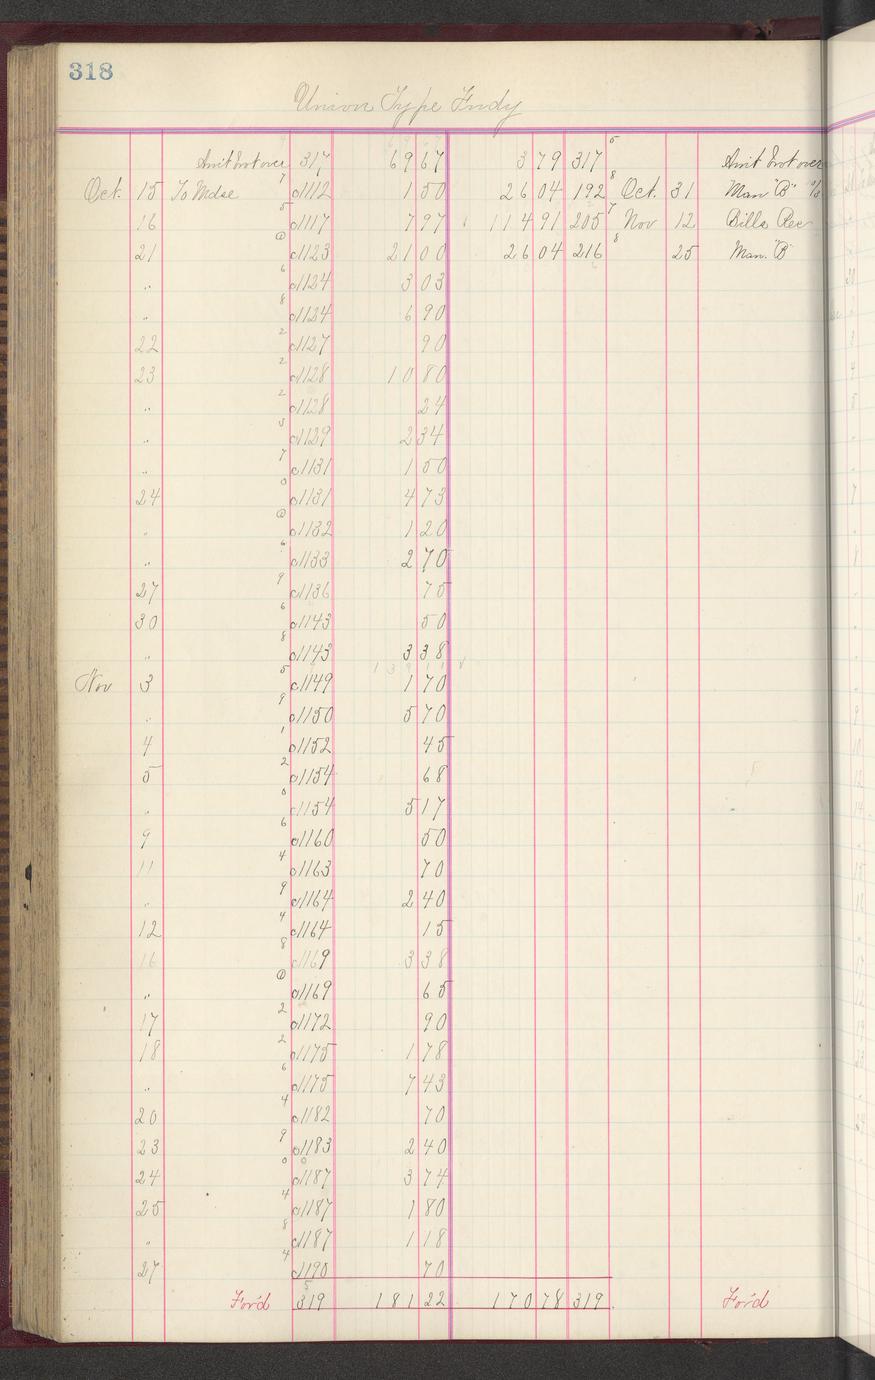 318
Union Type Fndy
Amt brot over 317 69 67 3 79 317 Amt brot over
Oct. 15 To Mdse c1112 1 50 26 04 192 Oct. 31 Man "B"
16 c1117 7 97 114 91 205 Nov 12 Bills Rec
21 c1123 21 00 26 04 216 25 Man. "B"
" c1124 3 03
" c1124 6 90
22 c1127 90
23 c1128 10 80
" c1128 24
" c1129 2 34
" c1131 1 50
24 c1131 4 73
" c1132 1 20
" c1133 2 70
27 c1136 75
30 c1143 50
" c1143 3 38
Nov 3 c1149 1 70
" c1150 5 70
4 c1152 45
5 c1154 68
" c1154 5 17
9 c1160 50
11 c1163 70
" c1164 2 40
12 c1164 15
16 c1169 3 38
" c1169 65
17 c1172 90
18 c1175 1 78
" c1175 7 43
20 c1182 70
23 c1183 2 40
24 c1187 3 74
25 c1187 1 80
" c1187 1 18
27 c1190 70
For'd 319 181 22 170 78 319 For'd